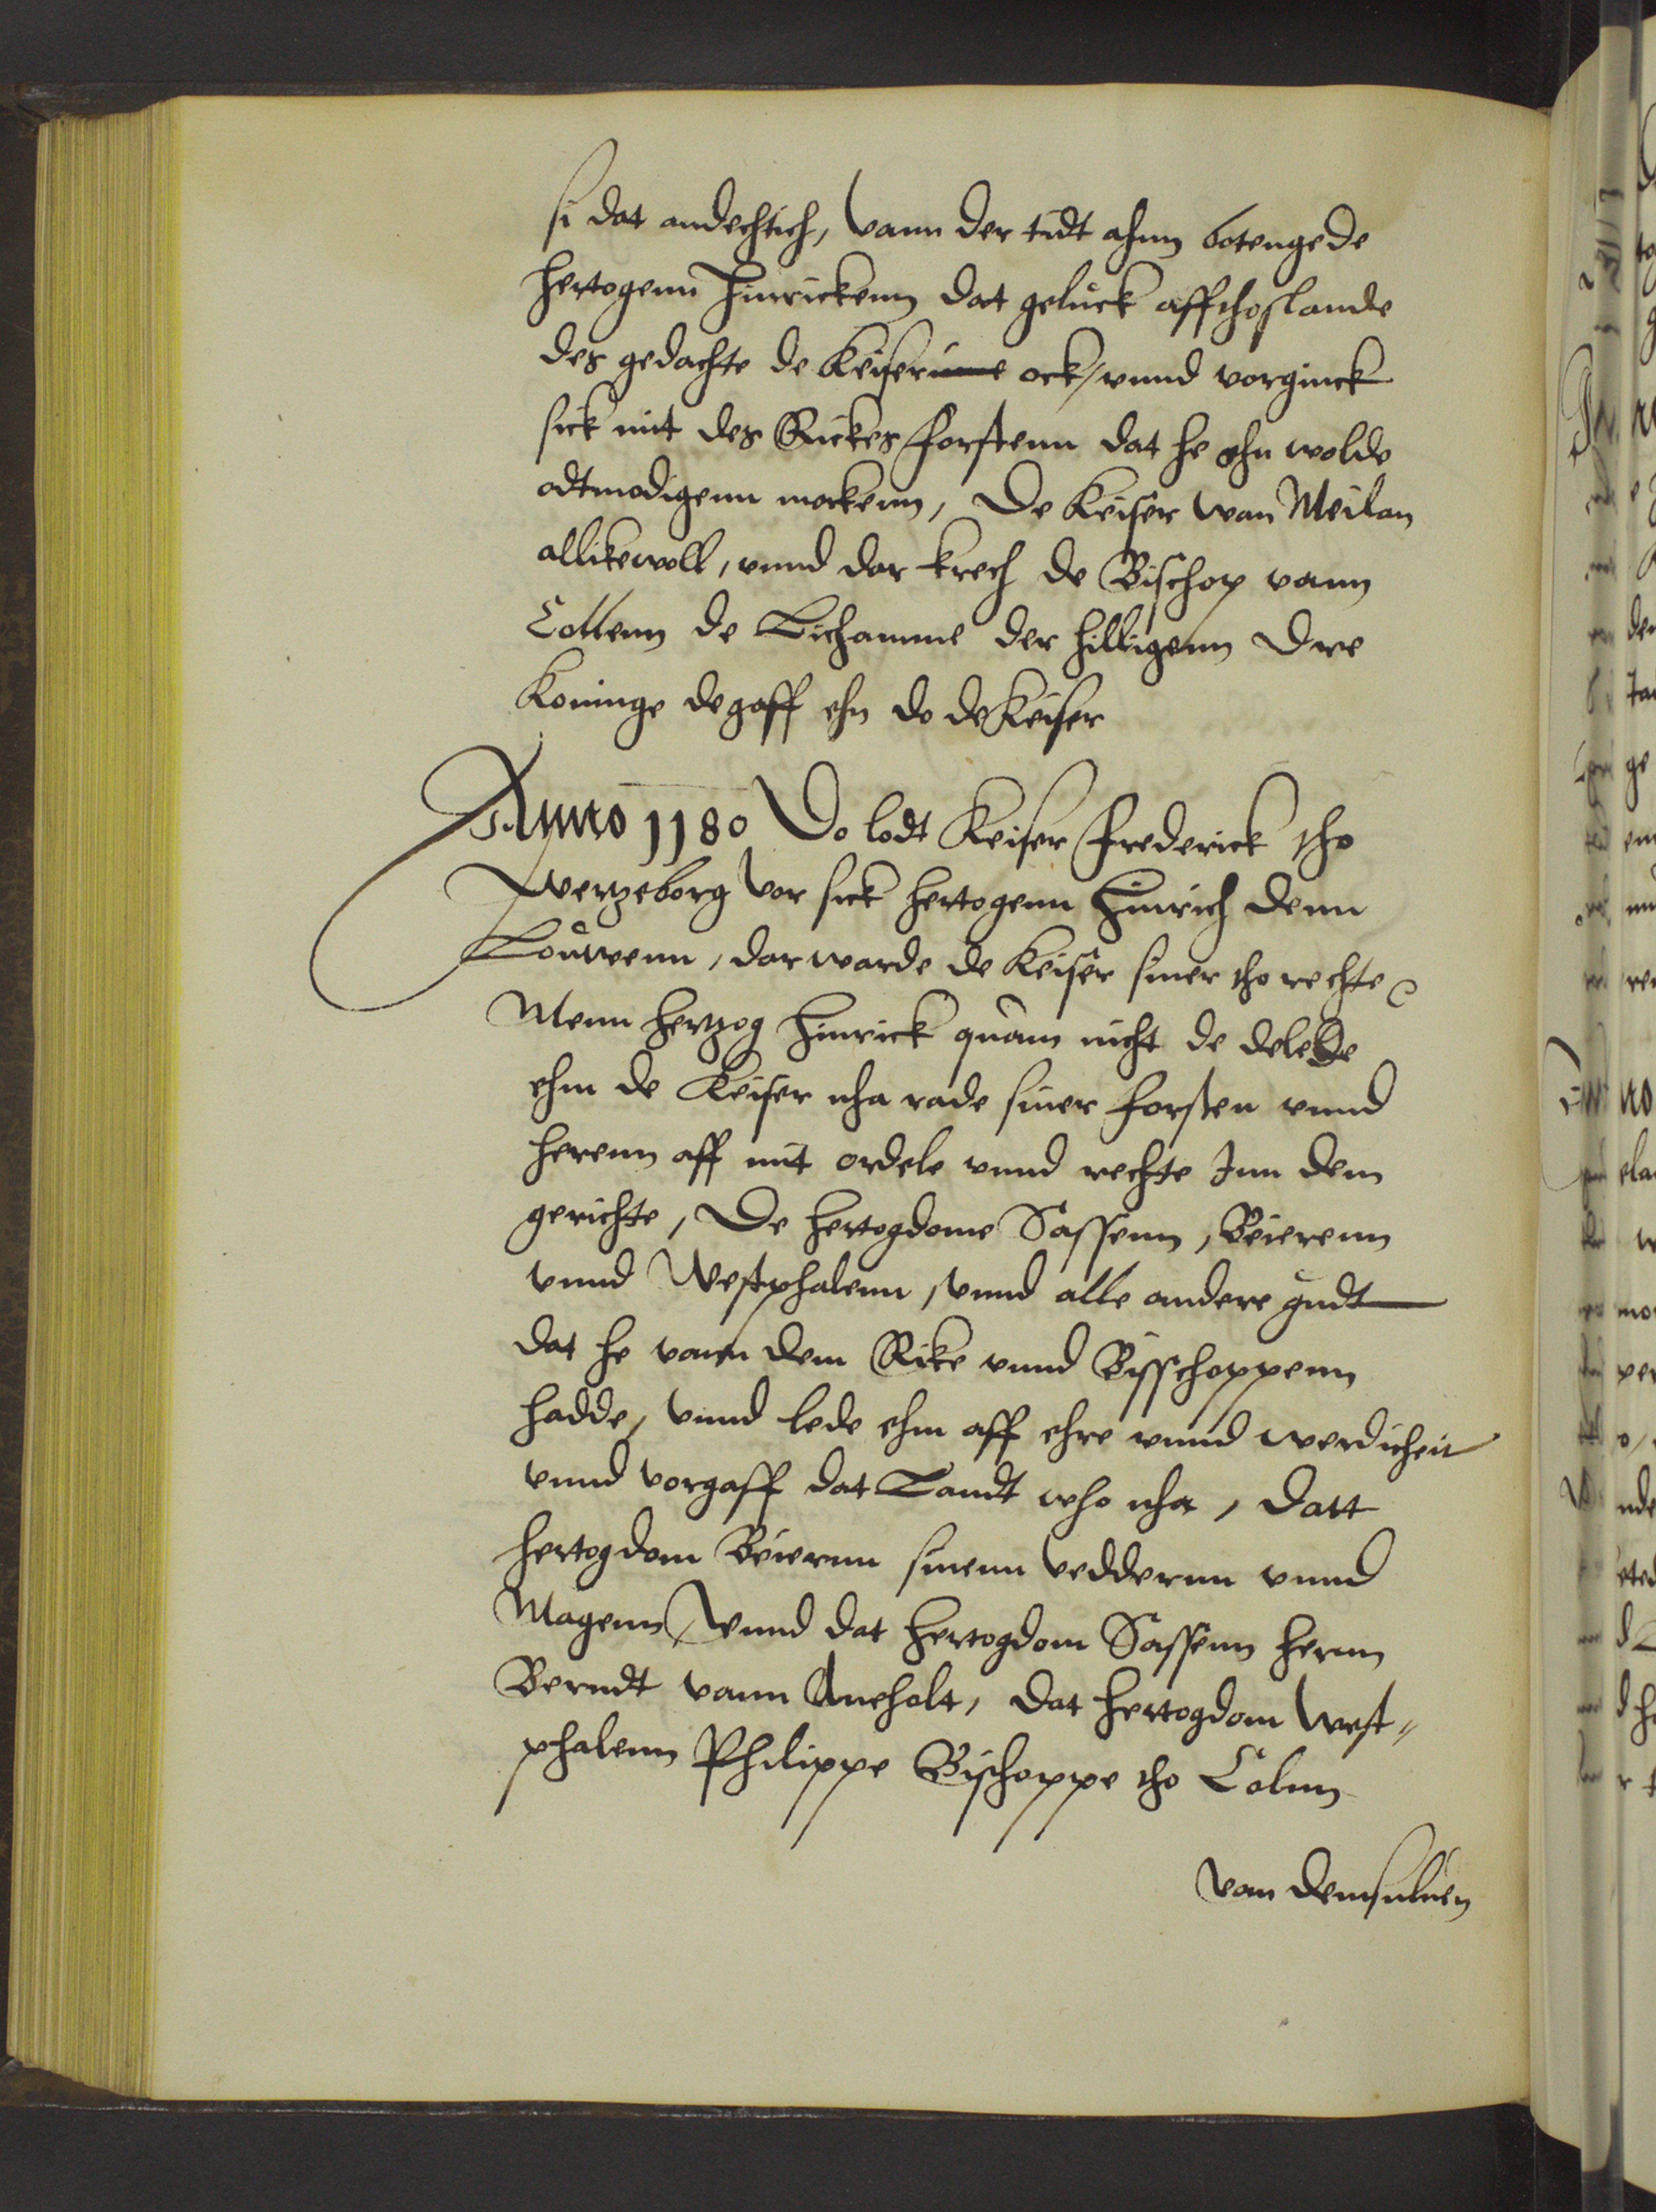 si dat andechtich, vann der tidt ahnn botengede
hertogenn Hinrickenn dat geluck affthoslande
des gedachte de Keiser ock, vnnd vorginck
sick mit des Rickes Forstenn dat he ehn wolde
odtmodigenn mockenn, De Keiser wan Meilan
allikewoll, vnnd dar krech de Bischop vann
Collenn de Lichamme der hilligenn Dre
Koninge de gaff ehn do de Keiser
Anno 1180 Do lodt Keiser Frederick tho
Wertzeborg vor sick hertogenn Hinrich denn
Louwenn, dar warde de Keiser siner tho rechte
Menn Hertzog Hinrick quam nicht de delede
ehm de Keiser nha rade siner Forsten vnnd
herenn aff mit ordele vnnd rechte Inn dem
gerichte, De hertogdome Sassenn, Beierenn
vnnd Westphalenn, vnnd alle andere gudt
dat he vann dem Rike vnnd Bisschoppenn
hadde, vnnd lede ehm aff ehre vnnd werdicheit
vnnd vorgaff dat Landt who nha, Datt
hertogdom Beiernn sinenn veddernn vnnd
Magenn, vnnd dat hertogdom Sassenn hernn
Berndt vann Anehalt, dat hertogdom West-
phalenn Philippe Bischoppe tho Colnn
van demsuluen